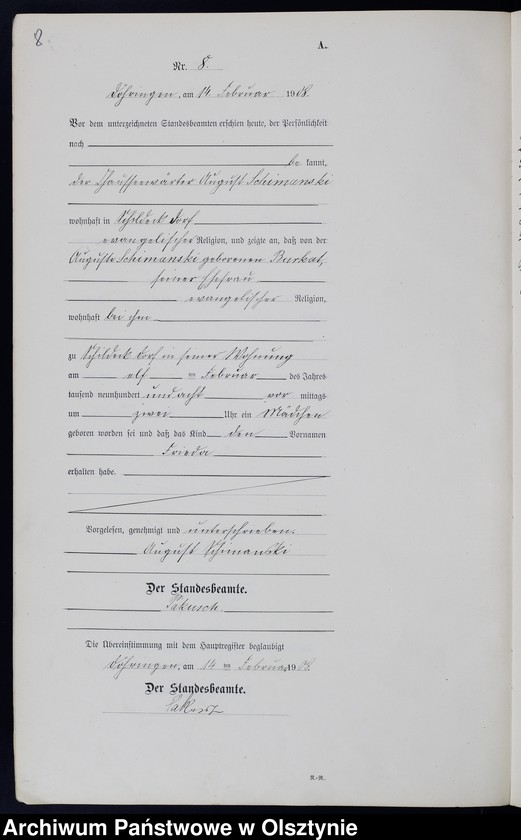 8
A.
Nr. 8.
Döhringen, am 14 Februar 1908.
Vor dem unterzeichneten Standesbeamten erschien heute, der Persönlichkeit
nach
be kannt,
der Chausseewärter August Schimanski
wohnhaft in Schildeck Dorf
evangelischer Religion, und zeigte an, daß von der
Auguste Schimanski geborenen Burkat,
seiner Ehefrau
evangelischer Religion,
wohnhaft bei ihm
zu Schildeck Dorf in seiner Wohnung
am elf ten Februar des Jahres
tausend neunhundert und acht vor mittags
um zwei Uhr ein Mädchen
geboren worden sei und daß das Kind den Vornamen
Frieda
erhalten habe.
Vorgelesen, genehmigt und unterschrieben.
August Schimanski
Der Standesbeamte.
Die Übereinstimmung mit dem Hauptregister beglaubigt
Döhringen, am 14 ten Februar 1908.
Der Standesbeamte.
K.-R.
Archiwum Państwowe w Olsztynie